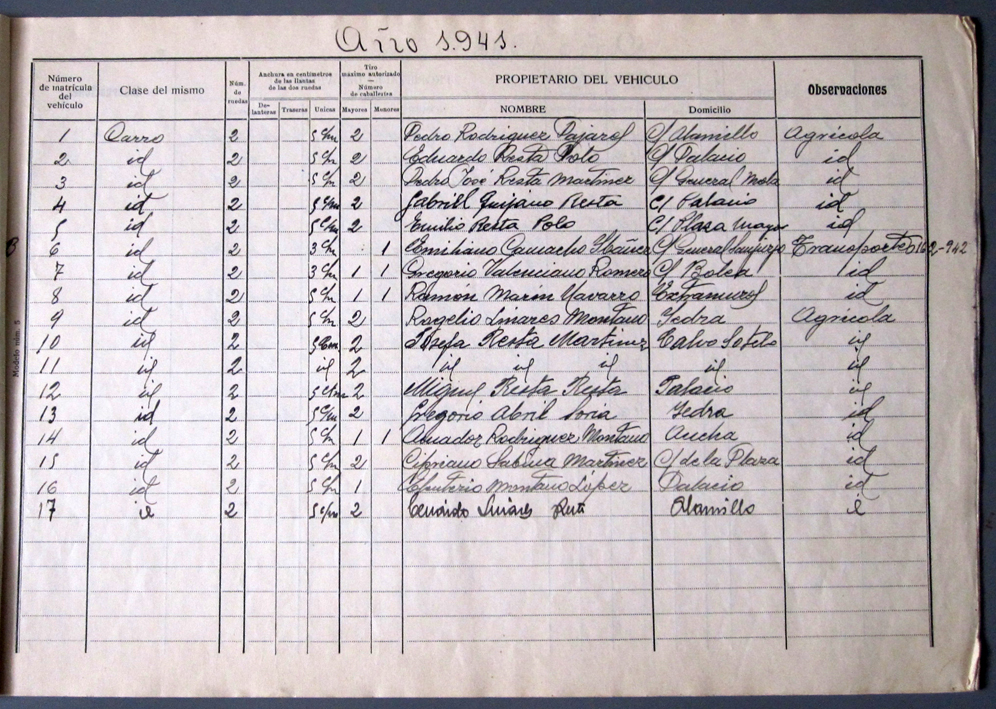 Año 1.941.
Número de matrícula del vehículo Clase del mismo Núm. de ruedas Anchura en centímetros de las llantas de las dos ruedas Tiro máximo autorizado — Número de caballerías PROPIETARIO DEL VEHICULO Observaciones
Delanteras Traseras Unicas Mayores Menores NOMBRE Domicilio
1 Carro 2 5 c/m 2 Pedro Rodriguez Pajarol C/ Alamillo Agrícola
2 id 2 5 c/m 2 Eduardo Resta Polo C/ Palacio id
3 id 2 5 c/m 2 Pedro José Resta Martinez C/ General Mola id
4 id 2 5 c/m 2 Gabriel Quijano Resta C/ Palacio id
5 id 2 5 c/m 2 Emilio Resta Polo C/ Plaza mayor id
6 id 2 3 c/m 1 Emiliano Camacho Ibañez C/ General Sanjurjo Transportes
7 id 2 3 c/m 1 1 Gregorio Valenciano Romero C/ id
8 id 2 5 c/m 1 1 Ramón Marin Navarro Extramuros id
9 id 2 5 c/m 2 Rogelio Linares Montano Yedra Agrícola
10 id 2 5 c/m 2 Josefa Resta Martinez Calvo Sotelo id
11 id 2 id 2 id id id id id
12 id 2 5 c/m 2 Miguel Resta Resta Palacio id
13 id 2 5 c/m 2 Gregorio Abril Soria Yedra id
14 id 2 5 c/m 1 1 Amador Rodriguez Montano Ancha id
15 id 2 5 c/m 2 Cipriano Sabina Martinez C/ de la Plaza id
16 id 2 5 c/m 1 Montano López Palacio id
17 id 2 5 c/m 2 Linares Alamillo id
Modelo núm. 5